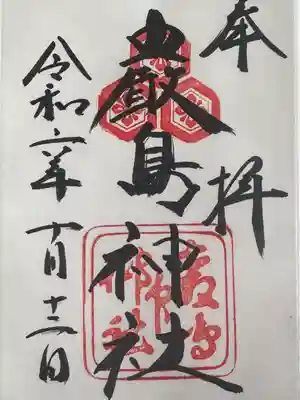 奉拝
嚴島神社
令和六年十月十二日
嚴島神社